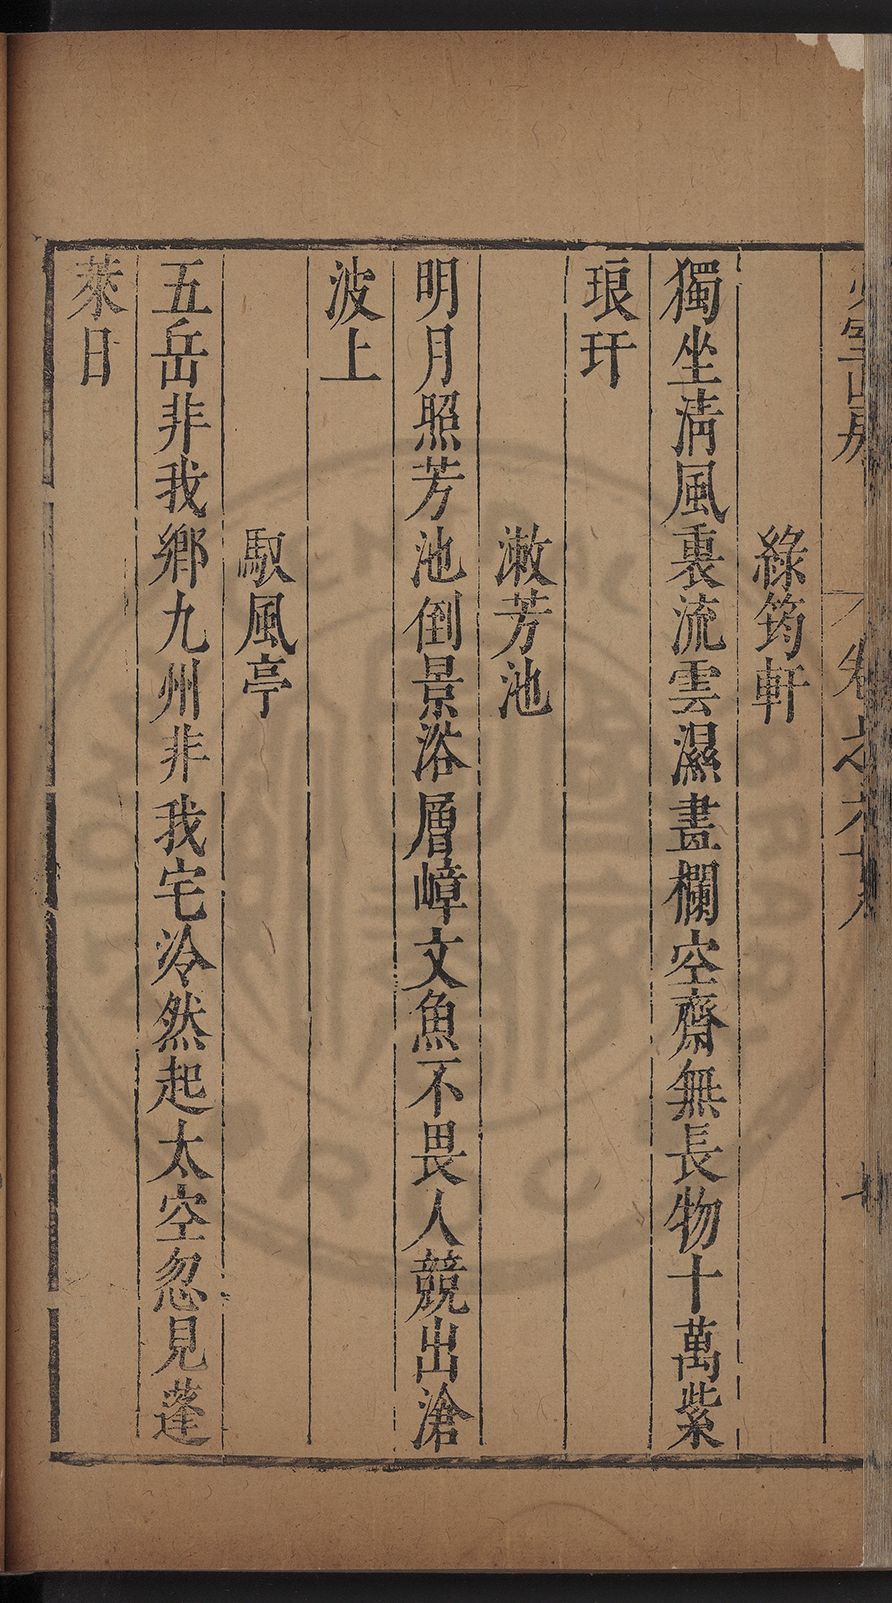 少室山房
卷之六十八
綠筠軒
獨坐淸風裏流雲濕畫欄空齋無長物十萬紫
琅玕
漱芳池
明月照芳池倒景浴層嶂文魚不畏人競出滄
波上
馭風亭
五岳非我鄉九州非我宅泠然起太空忽見蓬
萊日